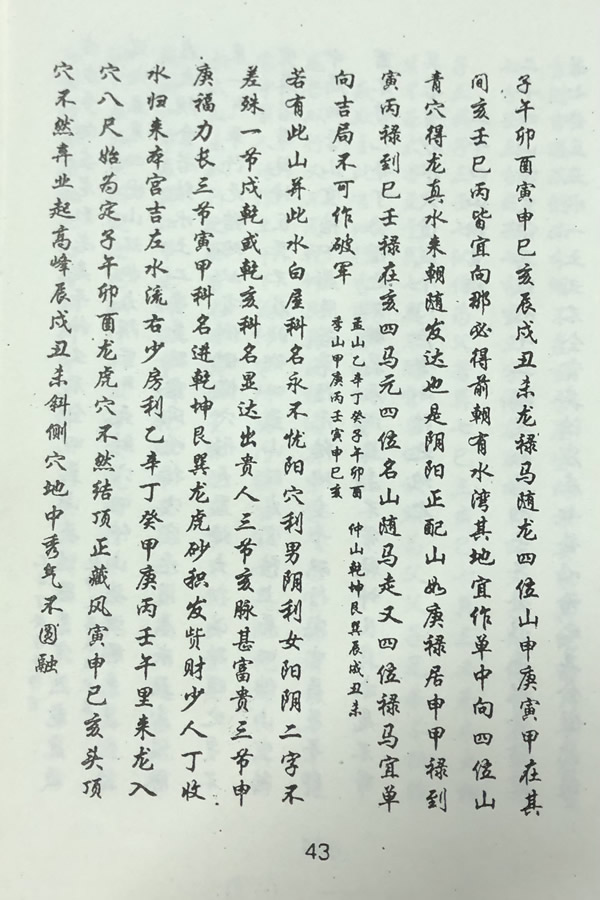 子午卯酉寅申巳亥辰戌丑未龙禄马随龙四位山申庚寅甲在其
间亥壬巳丙皆宜向那必得前朝有水湾其地宜作单中向四位山
青穴得龙真水来朝随发达也是阴阳正配山如庚禄居申甲禄到
寅丙禄到巳壬禄在亥四马元四位名山随马走又四位禄马宜单
向吉局不可作破军
孟山乙辛丁癸子午卯酉 仲山乾坤艮巽辰戌丑未
季山甲庚丙壬寅申巳亥
若有此山并此水白屋科名永不忧阳穴利男阴利女阳阴二字不
差殊一节戌乾或乾亥科名显达出贵人三节亥脉甚富贵三节申
庚福力长三节寅甲科名进乾坤艮巽龙虎砂积发赀财少人丁收
水归来本宫吉左水流右少房利乙辛丁癸甲庚丙壬午里来龙入
穴八尺始为定子午卯酉龙虎穴不然结顶正藏风寅申巳亥头顶
穴不然弃业起高峰辰戌丑未斜侧穴地中秀气不圆融
43